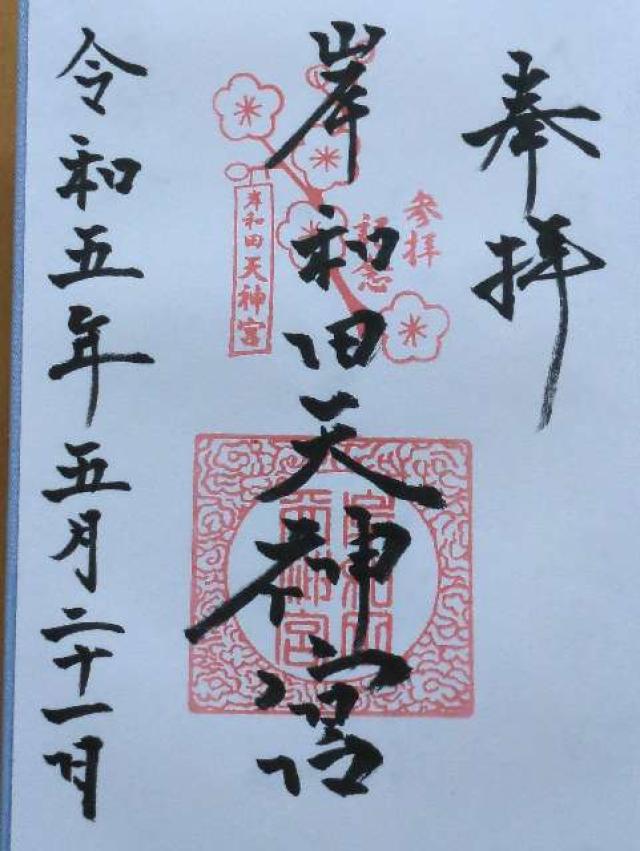 奉拝
参拝
記念
岸和田天神宮
岸和田天神宮
岸和田
天神宮
令和五年五月二十一日